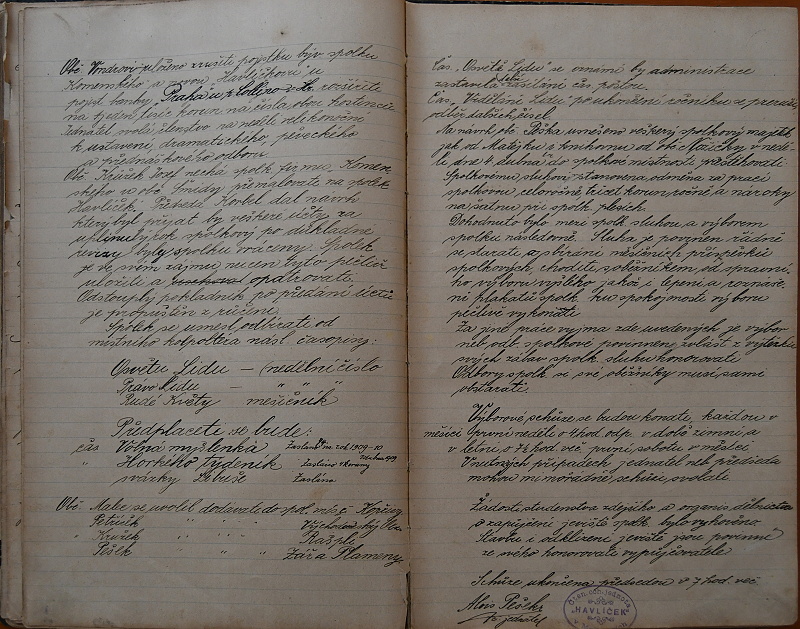 Obč. Vondrovi uloženo zrušiti pojistku býv. spolku
Komenského a novou Havlíčkovu u
pojišť. banky Praha
na týden, korun na
Jednatel svolá členstvo na neděli velikonoční
k ustavení dramatického, pěveckého
a přednáškového odboru.
Obč. Kruček Josef nechá spolk. firmu Komen-
ského u obč. Smidy přemalovati na spolek
Havlíček. Předseda Korbel dal návrh
který byl přijat by veškeré účty za
uplynulý rok spolkový po důkladné
revizi byly spolku vráceny. Spolek
je ve svém zájmu nucen tyto pečlivě
uložiti a opatrovati.
Odstouplý pokladník po předání účtů
je propuštěn z ručení.
Spolek se usnesl odbírati od
místního kolportera násl. časopisy:
Osvětu Lidu – (nedělní číslo
Právo Lidu – " " "
Rudé Květy měsíčník
Předplaceti se bude:
čas Volná myšlenka na rok 1909-10
" Horkého týdeník zasláno 4 koruny
svazky Libuše zasláno
Obč. Malec se uvolil dodávati do spol. míst.
Petříček " " " Východočeský
" Kruček " " " Rašpli
" Pešek " " " Záři a Plameny
Čas. „Osvěta Lidu" se oznámí by administrace
zastavila další zasílání čas. poštou.
Čas. „Vzdělání Lidu" po ukončení ročníku se
odběr dalších čísel.
Na návrh ob. Peška usneseno veškerý spolkový majetek
jak od Matějka a knihovnu od obč. v nedě-
li, dne 4. dubna do spolkové místnosti přestěhovati.
Spolkovému sluhovi stanovena odměna za práci
spolkovou, celoročně třicet korun ročně a nároky
na šatnu při spolk. plesích.
Dohodnuto bylo mezi spolk. sluhou a výborem
spolku následovně. Sluha je povinen řádně
se starati o sbírání měsíčních příspěvků
spolkových, choditi s oběžníkem od správní-
ho výboru vyšlého jakož i lepení a roznáše-
ní plakátů spolk. ku spokojenosti výboru
pečlivě vykonati.
Za jiné práce vyjma zde uvedených je výbor
neb odb. spolkové povinnen, zvlášť z výtěžku
svých zábav spolk. sluhu honorovati.
Odbory spolk. se své oběžníky musí sami
obstarati.
Výborové schůze se budou konati, každou v
měsíci první neděli o 4 hod. odp. v době zimní a
v letní, o ½8 hod. več. první sobotu v měsíci
V nutných případech jednatel neb předseda
mohou mimořádné schůze svolati.
Žádosti studenstva zdejšího a organis. dělnictva
o zapůjčení jeviště spolk. bylo vyhověno.
Stavbu i uklizení jeviště jsou povinni
ze svého honorovati vypůjčovatelé
Schůze ukončena předsedou o 7 hod. več.
Alois Pešek
t.č. jednatel
HAVLÍČEK